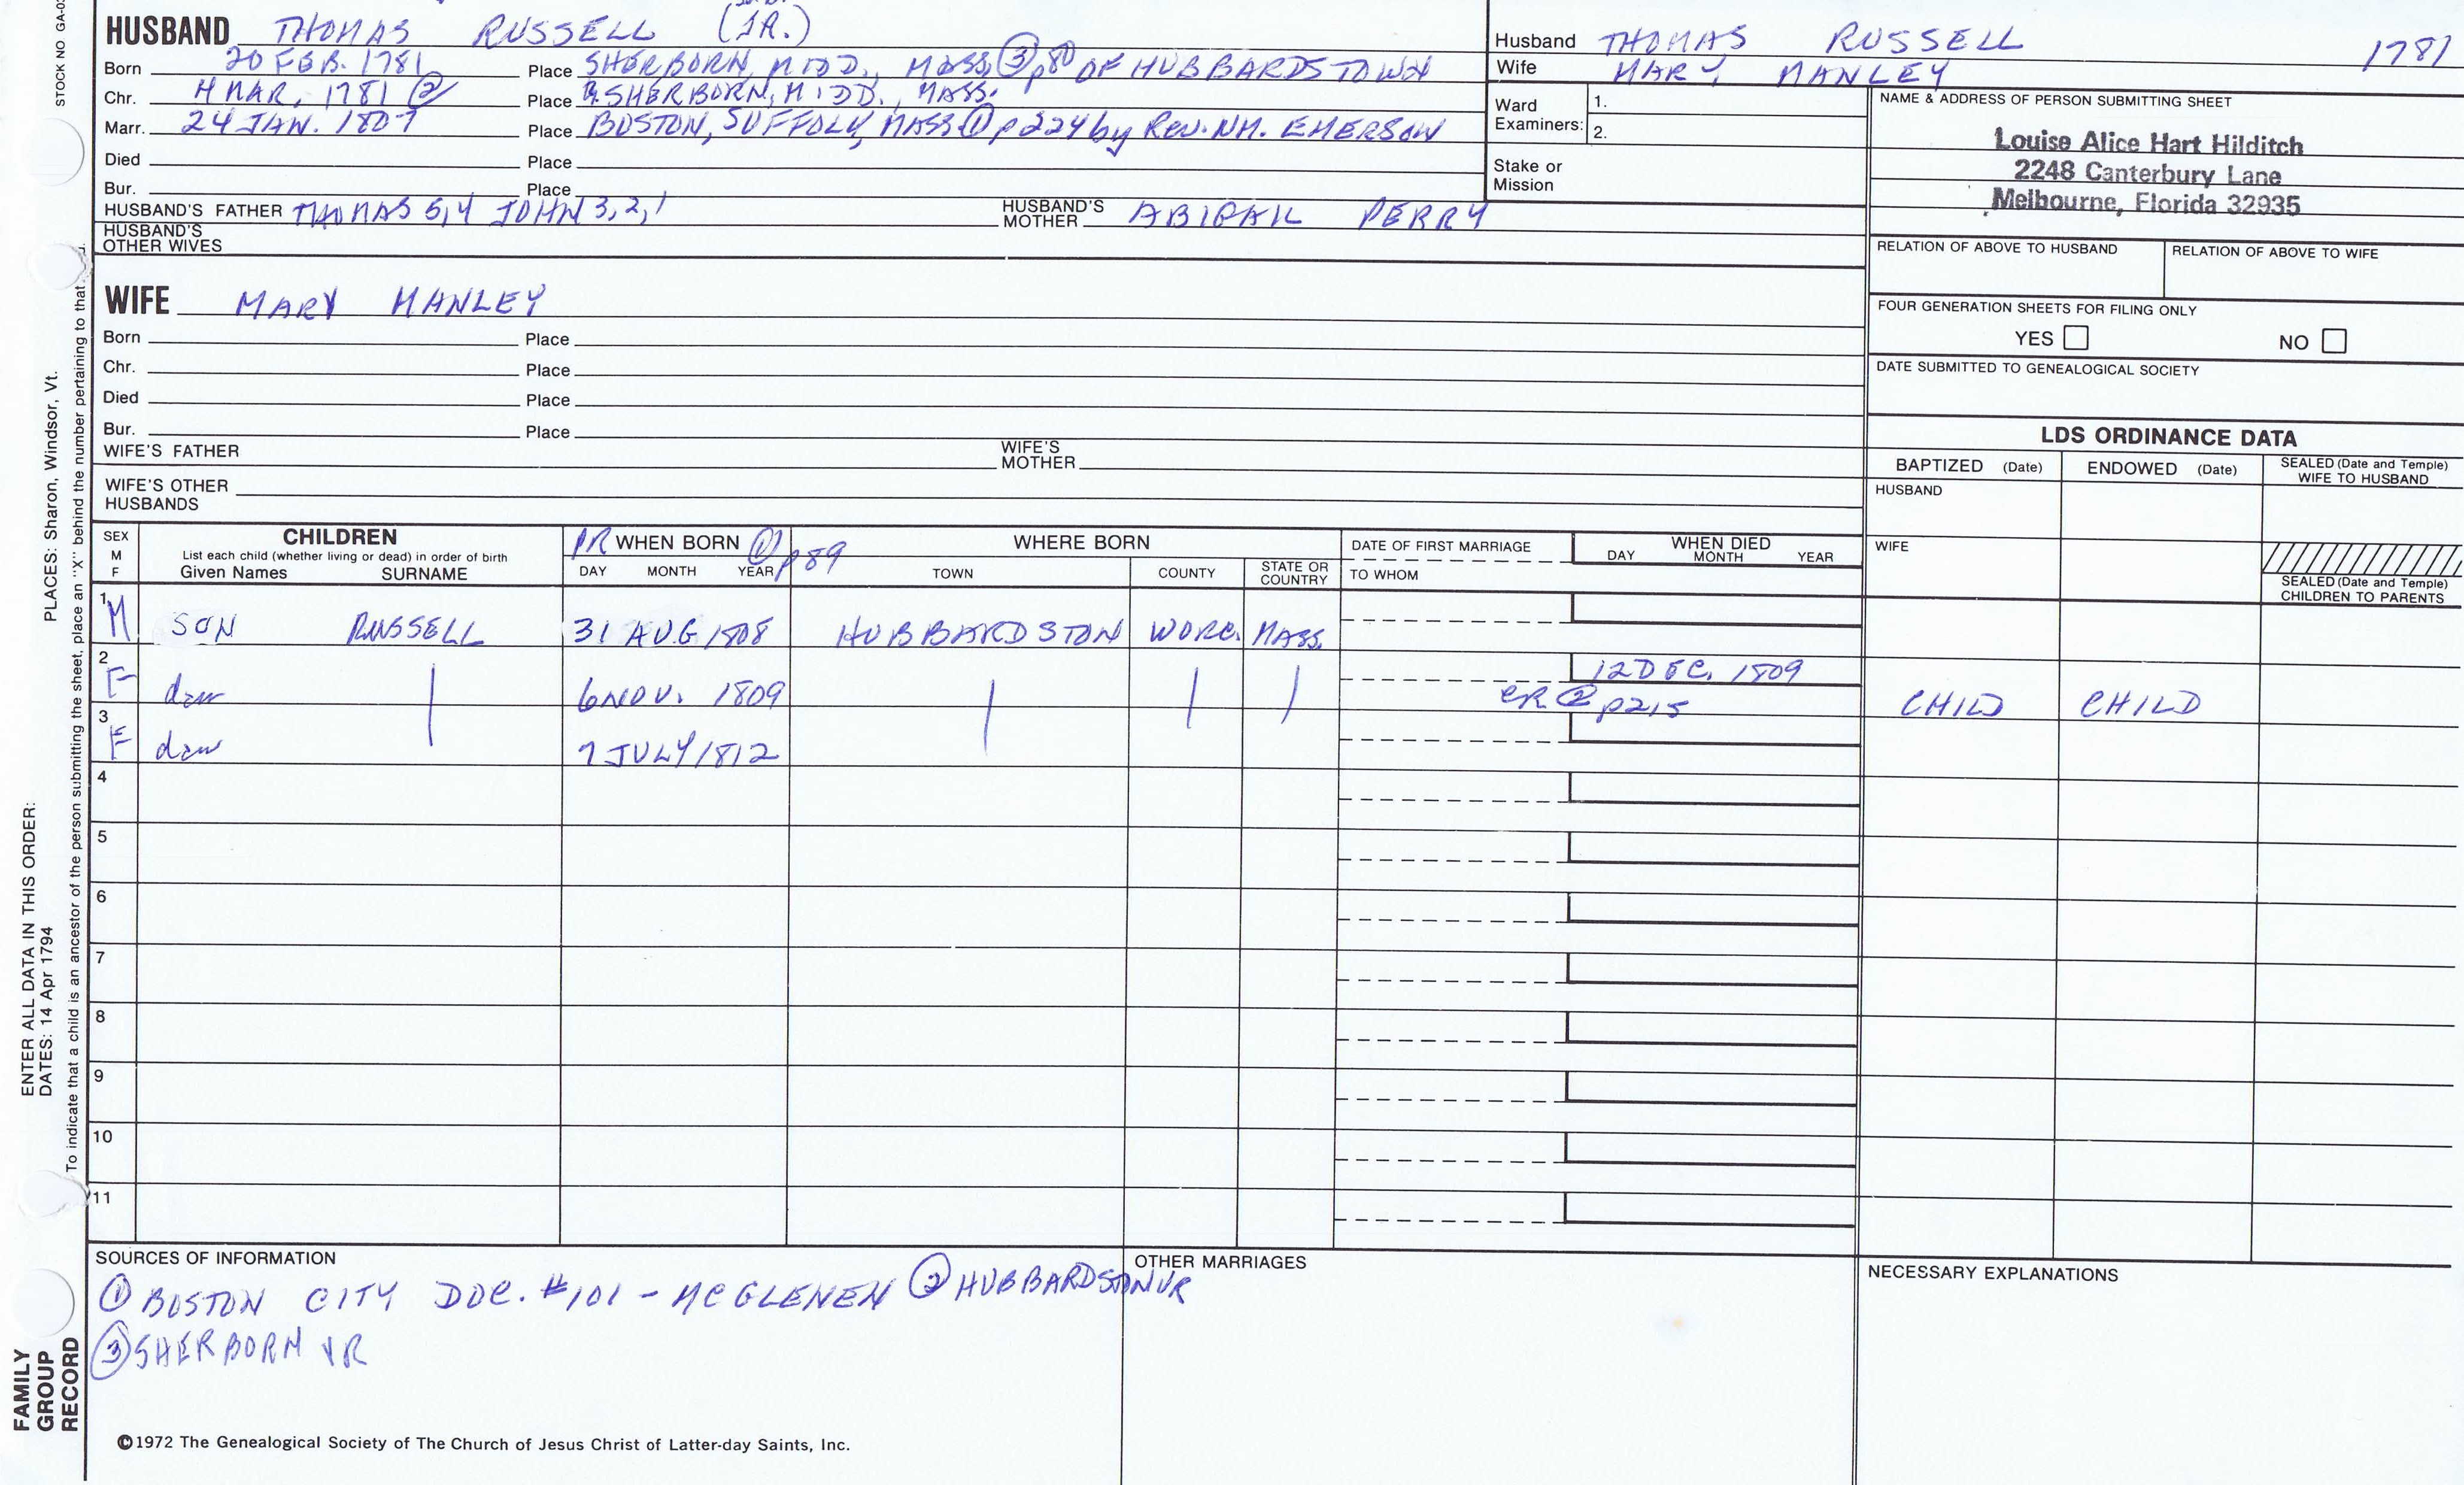 STOCK NO GA-0
HUSBAND THOMAS RUSSELL (JR.)
Born 20 FEB. 1781 Place SHERBORN, MIDD., MASS. ③ p80 OF HUBBARDSTOWN
Chr. 4 MAR. 1781 ② Place SHERBORN, MIDD., MASS.
Marr. 24 JAN. 1807 Place BOSTON, SUFFOLK, MASS ① p224 by Rev. NM. EMERSON
Died Place
Bur. Place
HUSBAND'S FATHER THOMAS 5,4 JOHN 3,2,1 HUSBAND'S MOTHER ABIGAIL PERRY
HUSBAND'S OTHER WIVES
Husband THOMAS RUSSELL 1781
Wife MARY MANLEY
Ward Examiners: 1.
2.
Stake or Mission
NAME & ADDRESS OF PERSON SUBMITTING SHEET
Louise Alice Hart Hilditch
2248 Canterbury Lane
Melbourne, Florida 32935
RELATION OF ABOVE TO HUSBAND RELATION OF ABOVE TO WIFE
FOUR GENERATION SHEETS FOR FILING ONLY
YES NO
DATE SUBMITTED TO GENEALOGICAL SOCIETY
WIFE MARY MANLEY
Born Place
Chr. Place
Died Place
Bur. Place
WIFE'S FATHER WIFE'S MOTHER
WIFE'S OTHER HUSBANDS
LDS ORDINANCE DATA
BAPTIZED (Date) ENDOWED (Date) SEALED (Date and Temple) WIFE TO HUSBAND
HUSBAND
WIFE
SEALED (Date and Temple) CHILDREN TO PARENTS
SEX M F
CHILDREN
List each child (whether living or dead) in order of birth
Given Names SURNAME
PR WHEN BORN ① p89
DAY MONTH YEAR
WHERE BORN
TOWN COUNTY STATE OR COUNTRY
DATE OF FIRST MARRIAGE
TO WHOM
WHEN DIED
DAY MONTH YEAR
1 M SON RUSSELL 31 AUG 1808 HUBBARDSTON WORC. MASS.
2 F dau 6 NOV. 1809 12 DEC. 1809
CR ② p215 CHILD CHILD
3 F dau 7 JULY 1812
4
5
6
7
8
9
10
11
SOURCES OF INFORMATION
① BOSTON CITY DOC. #101 - MCGLENEN ② HUBBARDSTON VR
③ SHERBORN VR
OTHER MARRIAGES
NECESSARY EXPLANATIONS
©1972 The Genealogical Society of The Church of Jesus Christ of Latter-day Saints, Inc.
PLACES: Sharon, Windsor, Vt.
To indicate that a child is an ancestor of the person submitting the sheet, place an "X" behind the number pertaining to that
ENTER ALL DATA IN THIS ORDER:
DATES: 14 Apr 1794
FAMILY
GROUP
RECORD